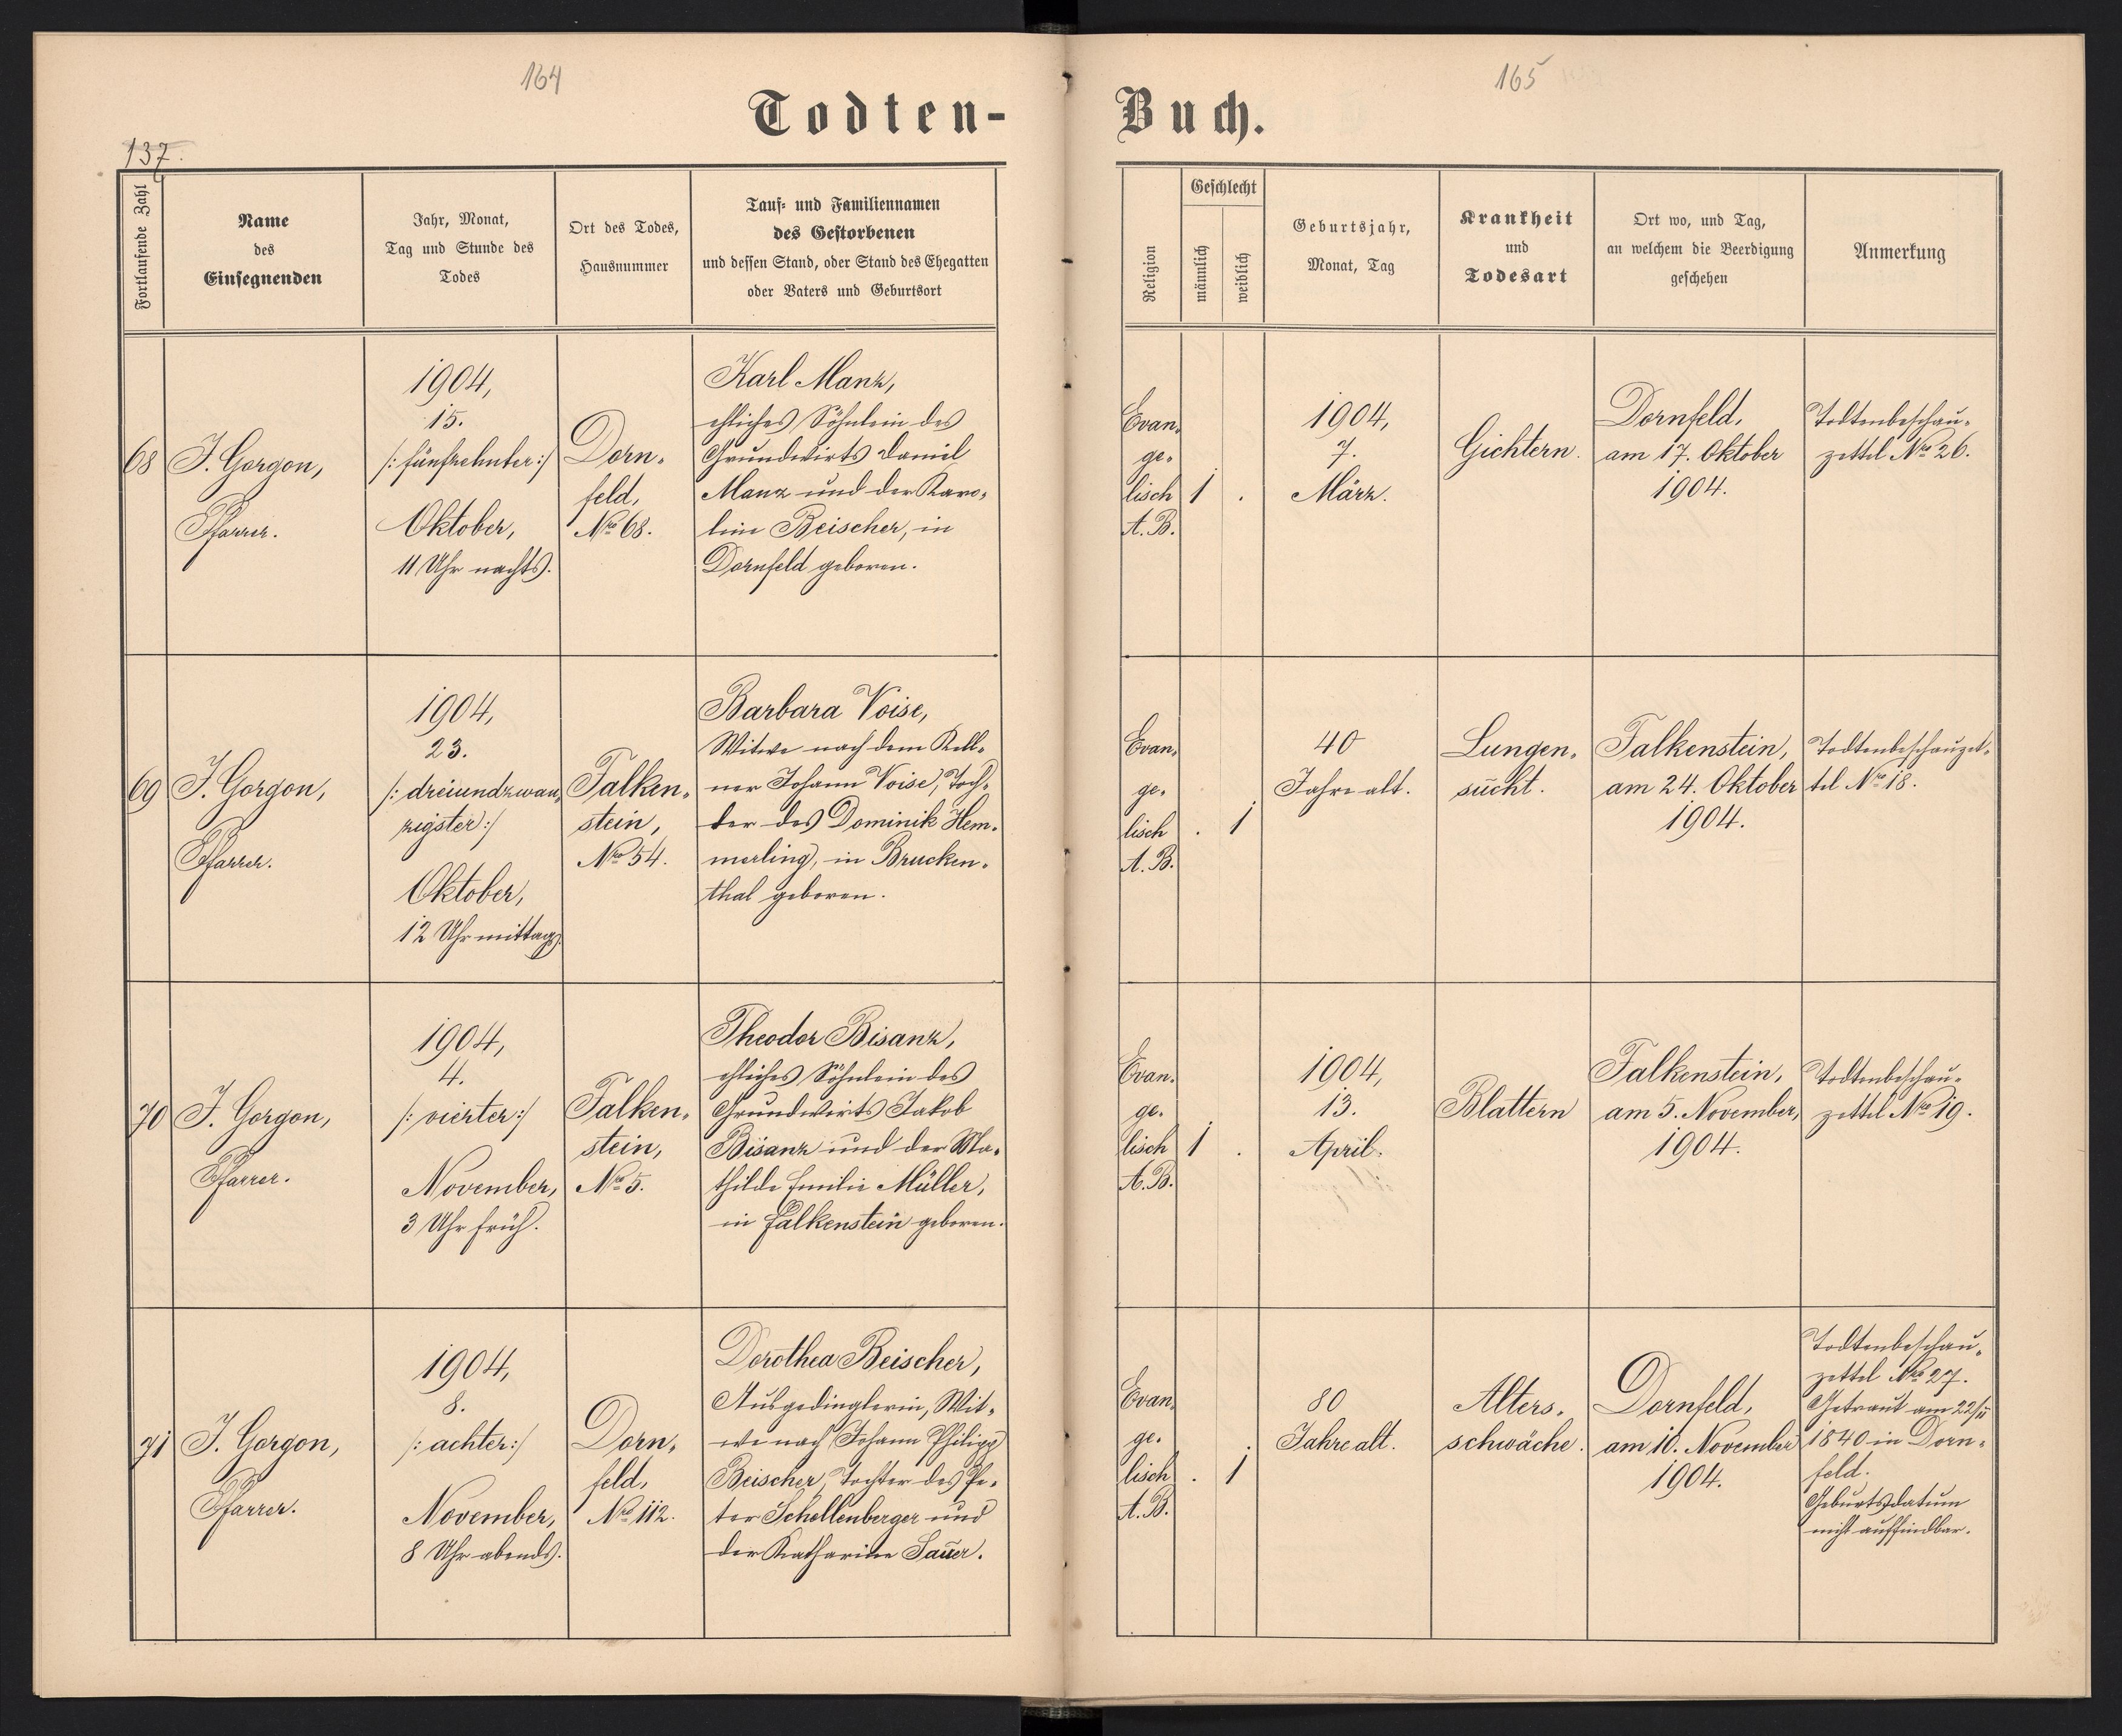 164
165
Todten-
Buch.
137.
Fortlaufende Zahl
Name
des
Einsegnenden
Jahr, Monat,
Tag und Stunde des
Todes
Ort des Todes,
Hausnummer
Tauf- und Familiennamen
des Gestorbenen
und dessen Stand, oder Stand des Ehegatten
oder Vaters und Geburtsort
Religion
Geschlecht
männlich
weiblich
Geburtsjahr,
Monat, Tag
Krankheit
und
Todesart
Ort wo, und Tag,
an welchem die Beerdigung
geschehen
Anmerkung
68
J. Gorgon,
Pfarrer.
1904,
15.
/: fünfzehnter :/
Oktober,
11 Uhr nachts.
Dorn-
feld,
Nro 68.
Karl Manz,
ehliches Söhnlein des
Grundwirts Daniel
Manz und der Karo-
line Beischer, in
Dornfeld geboren.
Evan-
ge-
lisch
A. B.
1
.
1904,
7.
März.
Gichtern.
Dornfeld,
am 17. Oktober
1904.
Todtenbeschau-
zettel Nro 26.
69
J. Gorgon,
Pfarrer.
1904,
23.
/: dreiundzwan-
zigster :/
Oktober,
12 Uhr mittags.
Falken-
stein,
Nro 54.
Barbara Voise,
Witwe nach dem Kell-
ner Johann Voise, Toch-
ter des Dominik Hem-
merling, in Brucken-
thal geboren.
Evan-
ge-
lisch
A. B.
.
1
40
Jahre alt.
Lungen-
sucht.
Falkenstein,
am 24. Oktober
1904.
Todtenbeschauzet-
tel Nro 18.
70
J. Gorgon,
Pfarrer.
1904,
4.
/: vierter :/
November,
3 Uhr früh.
Falken-
stein,
Nro 5.
Theodor Bisanz,
ehliches Söhnlein des
Grundwirts Jakob
Bisanz und der Ma-
thilde Emilie Müller,
in Falkenstein geboren.
Evan-
ge-
lisch
A. B.
1
.
1904,
13.
April.
Blattern
Falkenstein,
am 5. November,
1904.
Todtenbeschau-
zettel Nro 19.
71
J. Gorgon,
Pfarrer.
1904,
8.
/: achter :/
November,
8 Uhr abends.
Dorn-
feld,
Nro 112.
Dorothea Beischer,
Ausgedinglerin, Wit-
we nach Johann Philipp
Beischer, Tochter des Pe-
ter Schellenberger und
der Katharine Sauer.
Evan-
ge-
lisch
A. B.
.
1
80
Jahre alt.
Alters-
schwäche.
Dornfeld,
am 10. November
1904.
Todtenbeschau-
zettel Nro 27.
Getraut am 22/II
1840 in Dorn-
feld.
Geburtsdatum
nicht auffindbar.